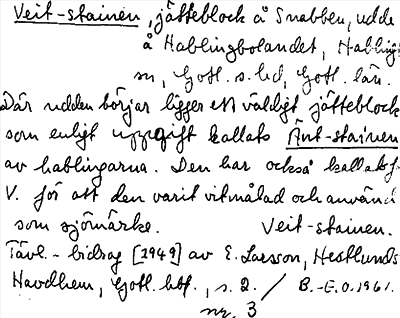 Veit-stainen, jätteblock å Snabben, udde
å Hablingbolandet, Habling-
sn, Gotl. s. hd, Gotl. län.
Där udden börjar ligger ett väldigt jätteblock
som enligt uppgift kallats Änt-stainen
av hablingarna. Den har också kallats
V. för att den varit vitmålad och använd
som sjömärke. Veit-stainen.
Tävl.-bidrag [1949] av E. Larsson, Hestlunds
Havdhem, Gotl. , s. 2. / B.-E.O. 1961.
nr. 3